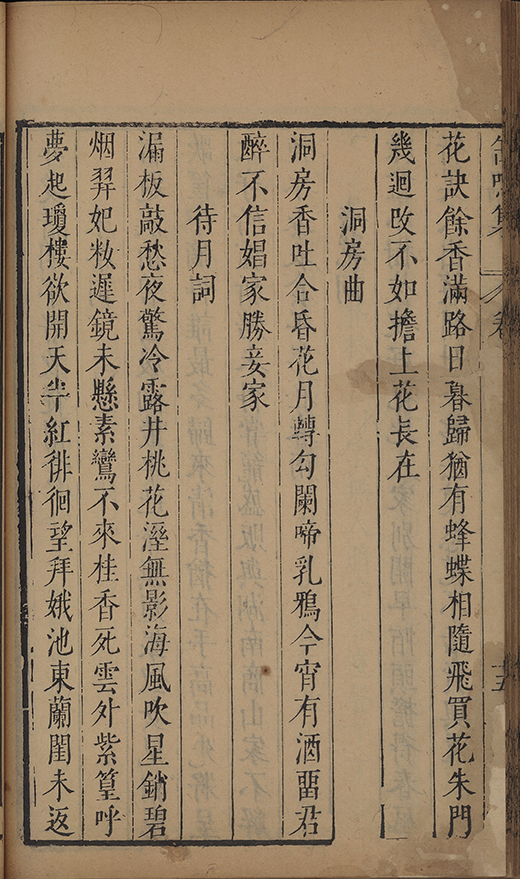 集 卷 十五
花訣餘香滿路日暮歸猶有蜂蝶相隨飛買花朱門
幾迴改不如擔上花長在
洞房曲
洞房香吐合昏花月轉勾闌啼乳鴉今宵有酒畱君
醉不信娼家勝妾家
待月詞
漏板敲愁夜驚冷露井桃花溼無影海風吹星銷碧
烟羿妃籹遲鏡未懸素鸞不來桂香死雲外紫篁呼
夢起瓊樓欲開天半紅徘徊望拜娥池東蘭閨未返